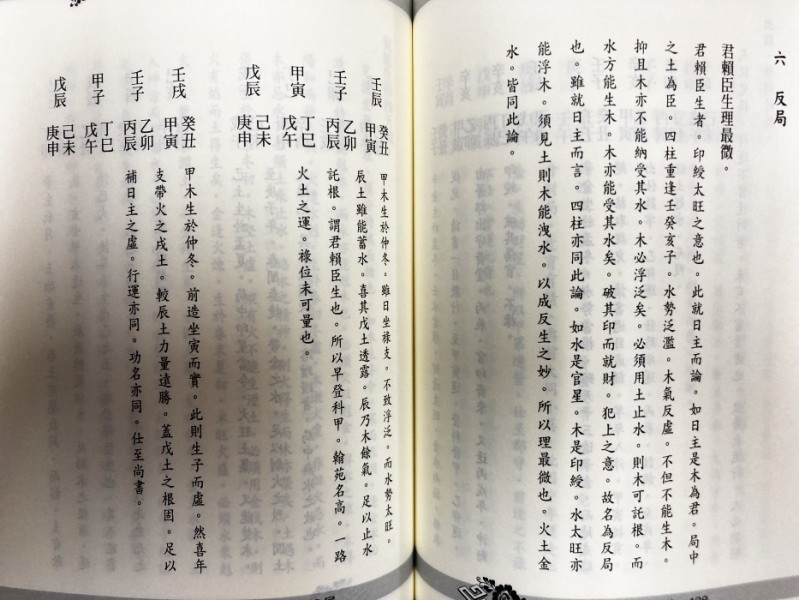 六 反局
君賴臣生理最微。
君賴臣生者。印綬太旺之意也。此就日主而論。如日主是木為君。局中
之土為臣。四柱重逢壬癸亥子。水勢泛濫。木氣反虛。不但不能生木。
抑且木亦不能納受其水。木必浮泛矣。必須用土止水。則木可託根。而
水方能生木。木亦能受其水矣。破其印而就財。犯上之意。故名為反局
也。雖就日主而言。四柱亦同此論。如水是官星。木是印綬。水太旺亦
能浮木。須見土則木能洩水。以成反生之妙。所以理最微也。火土金
水。皆同此論。
壬辰
壬子
甲寅
戊辰
癸丑
甲寅
乙卯
丙辰
丁巳
戊午
己未
庚申
甲木生於仲冬。雖日坐祿支。不致浮泛。而水勢太旺。
辰土雖能蓄水。喜其戊土透露。辰乃木餘氣。足以止水
託根。謂君賴臣生也。所以早登科甲。翰苑名高。一路
火土之運。祿位未可量也。
壬戌
壬子
甲子
戊辰
癸丑
甲寅
乙卯
丙辰
丁巳
戊午
己未
庚申
甲木生於仲冬。前造坐寅而實。此則生子而虛。然喜年
支帶火之戌土。較辰土力量遠勝。蓋戊土之根固。足以
補日主之虛。行運亦同。功名亦同。仕至尚書。